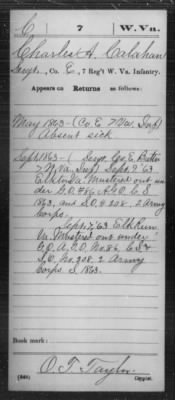 C 7 W. Va.
Charles A. Calahan
Sergt., Co. E, 7 Reg't W. Va. Infantry.
Appears on Returns as follows:
May 1863 - (Co. E 7 Va. Inf)
Absent sick
Sept 1863 - ( Sergt. Co. E. Battn
7 W. Va. Inf) Sept. 7, '63
Mustered out un
der G.O. #86 A.G.O. C.S.
1863, and S.O. #208. 2 Army
Corps.
Sept. 7, '63 Elk Run,
Va. Mustered out under
G.O. A.G.O. No. 86, C.S. &
S.O. No. 208. 2 Army
Corps S. 1863.
Book mark:
O. T. Taylor
(546) Copyist.